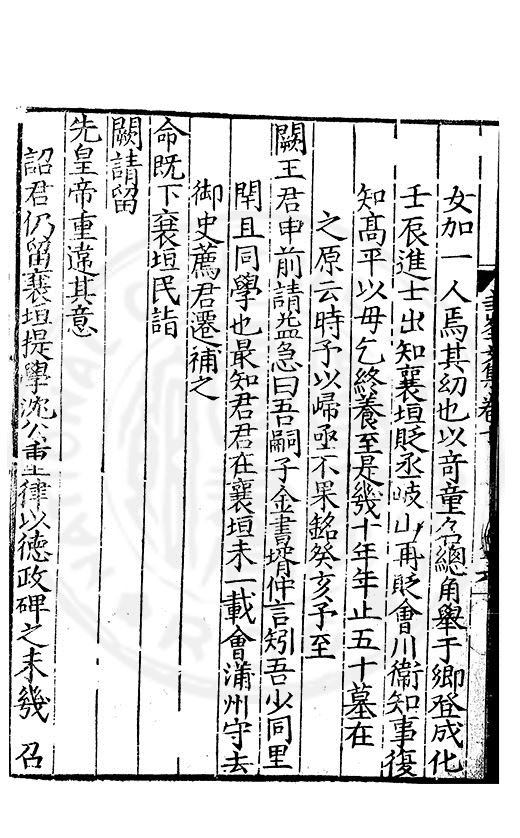 女加一人焉其幼也以奇童名總角舉于鄉登成化
壬辰進士出知襄垣貶丞岐山再貶會川衞知事復
知髙平以毋乞終養至是幾十年年止五十墓在
之原云時予以歸亟不果銘癸亥予至
闕王君申前請益急曰吾嗣子金書壻仲言矧吾少同里
閈且同學也最知君君在襄垣未一載會蒲州守去
御史薦君遷補之
命既下襄垣民詣
闕請留
先皇帝重違其意
詔君仍留襄垣提學沈公重律以德政碑之未幾 召